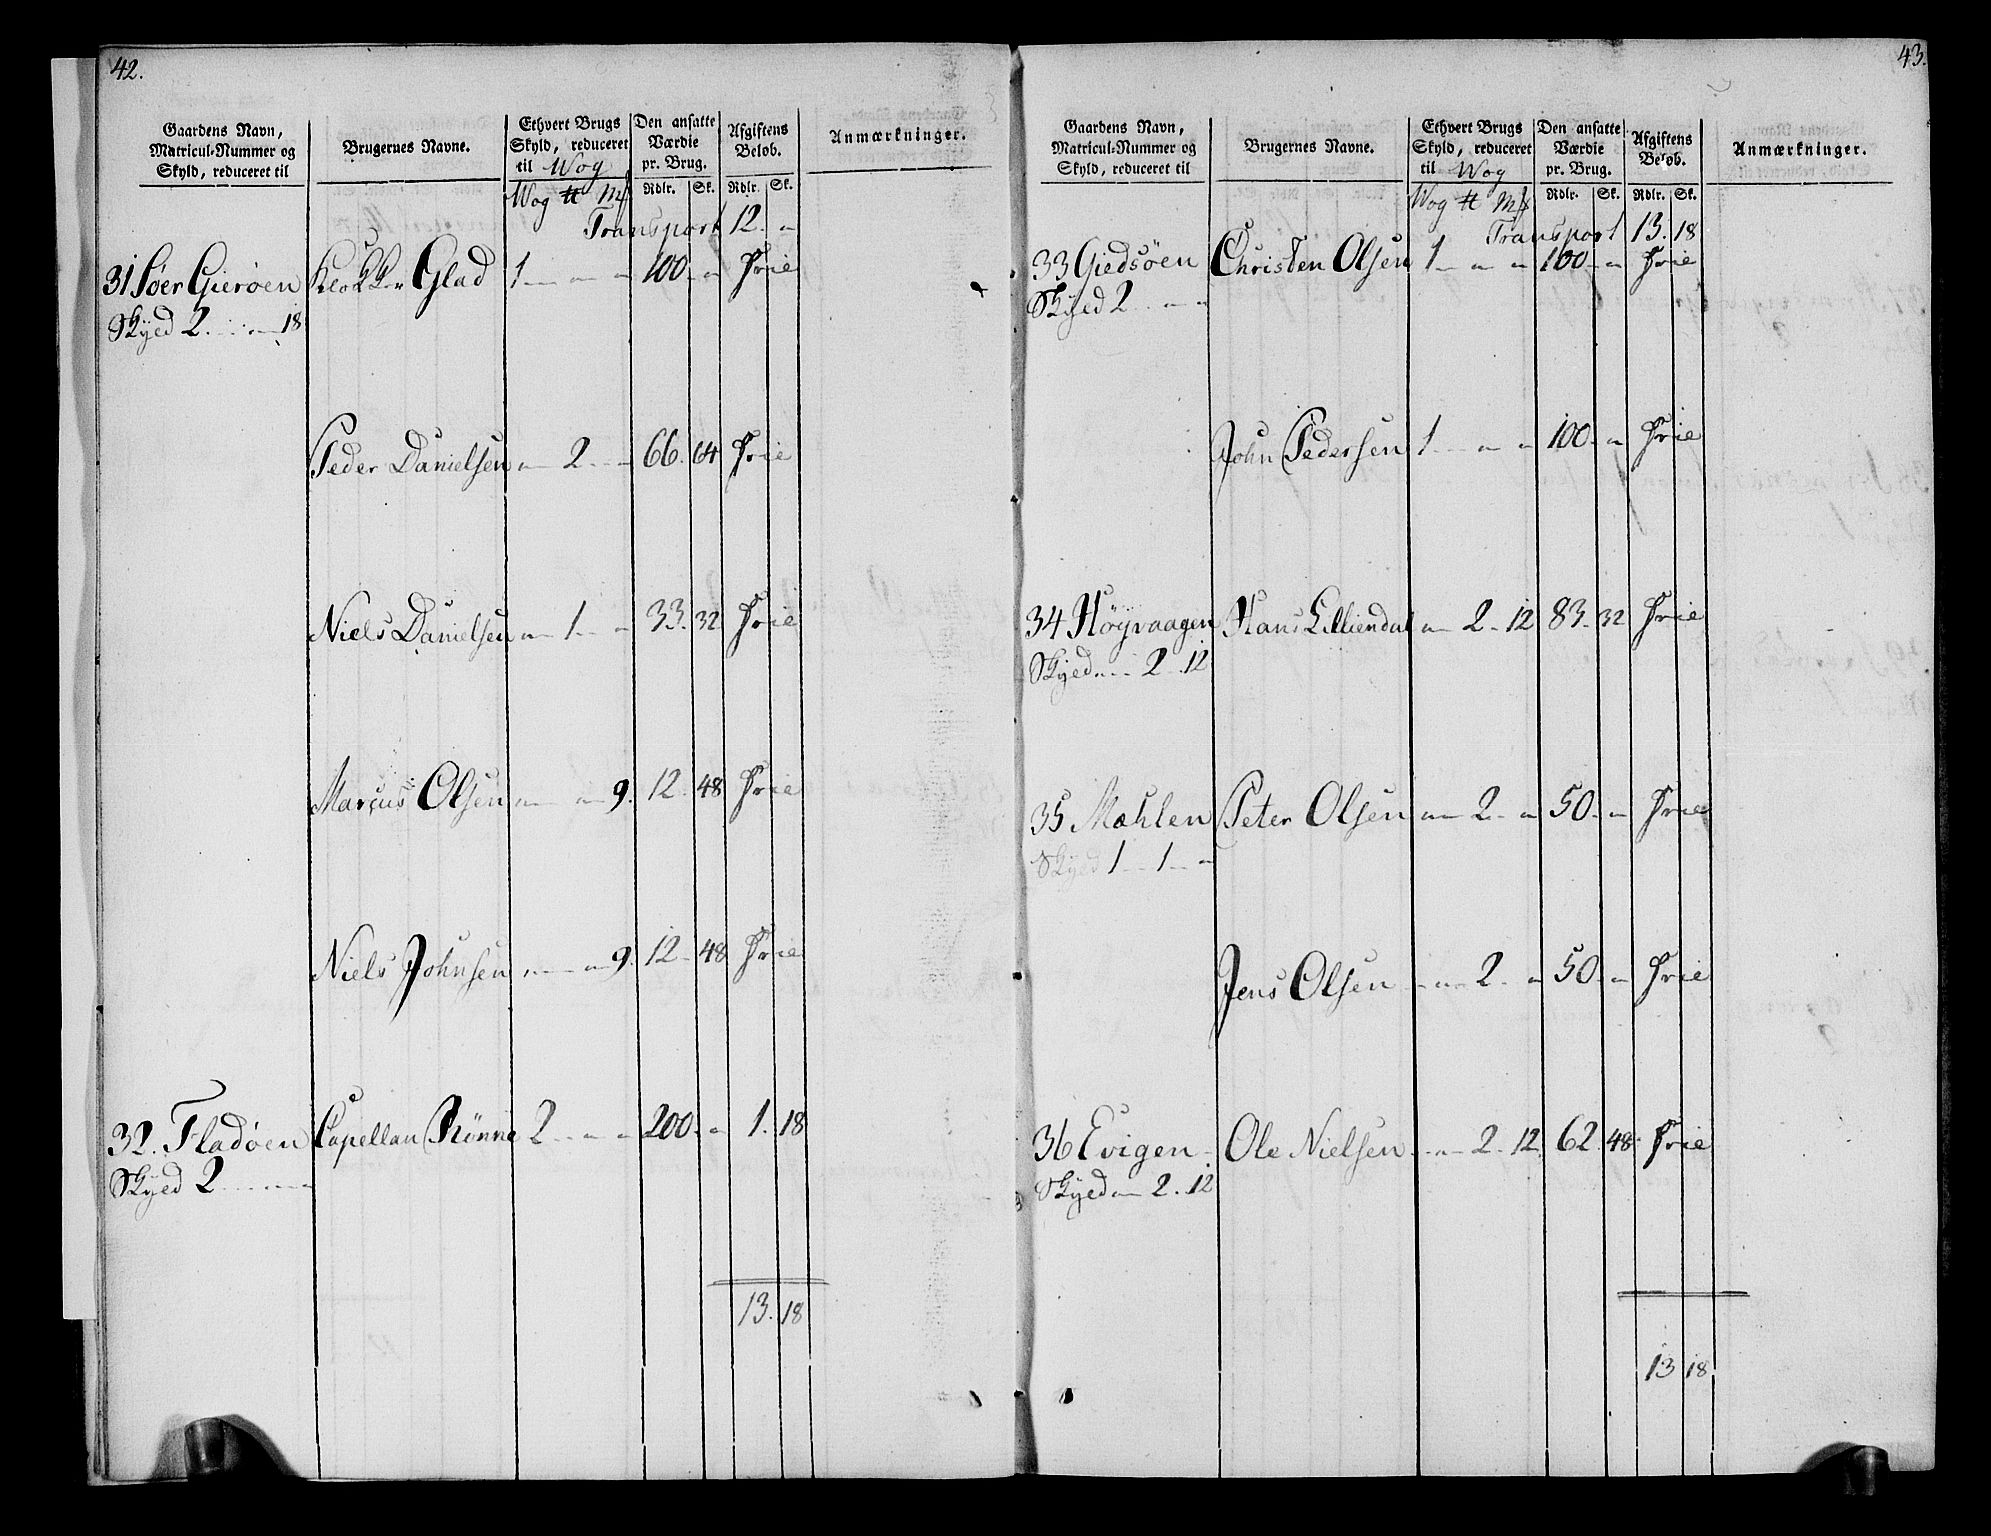 42.
Gaardens Navn, Matricul-Nummer og Skyld, reduceret til
Brugernes Navne.
Ethvert Brugs Skyld, reduceret til Wog
Den ansatte Værdie pr. Brug.
Afgiftens Beløb.
Anmærkninger.
Wog ⌗ M Rdlr. Sk. Rdlr. Sk.
Transport 12. "
31 Søer Gierøen Klokker Glad 1 " " 100. " Frie
Skyed 2 . . . 18
Peder Danielsen " 2 " 66. 64 Frie
Niels Danielsen " 1 " 33. 32 Frie
Marcus Olsen " " 9. 12. 48 Frie
Niels Johnsen " " 9. 12. 48 Frie
32. Fladøen Capellan Rönne 2 " " 200. " 1. 18
Skyed 2 " "
13. 18
43.
Gaardens Navn, Matricul-Nummer og Skyld, reduceret til
Brugernes Navne.
Ethvert Brugs Skyld, reduceret til Wog
Den ansatte Værdie pr. Brug.
Afgiftens Beløb.
Anmærkninger.
Wog ⌗ M Rdlr. Sk. Rdlr. Sk.
Transport 13. 18
33 Giedsöen Christen Olsen 1 " " 100. " Frie
Skyed 2 " "
John Pedersen 1 " " 100. " Frie
34 Höyvaagen Hans Lilliendal " 2. 12 83. 32 Frie
Skyed " 2. 12
35 Mæhlen Peter Olsen " 2. " 50. " Frie
Skyed 1 . 1 "
Jens Olsen " 2. " 50. " Frie
36 Evigen Ole Nielsen " 2. 12. 62. 48 Frie
Skyed " 2. 12
13 18